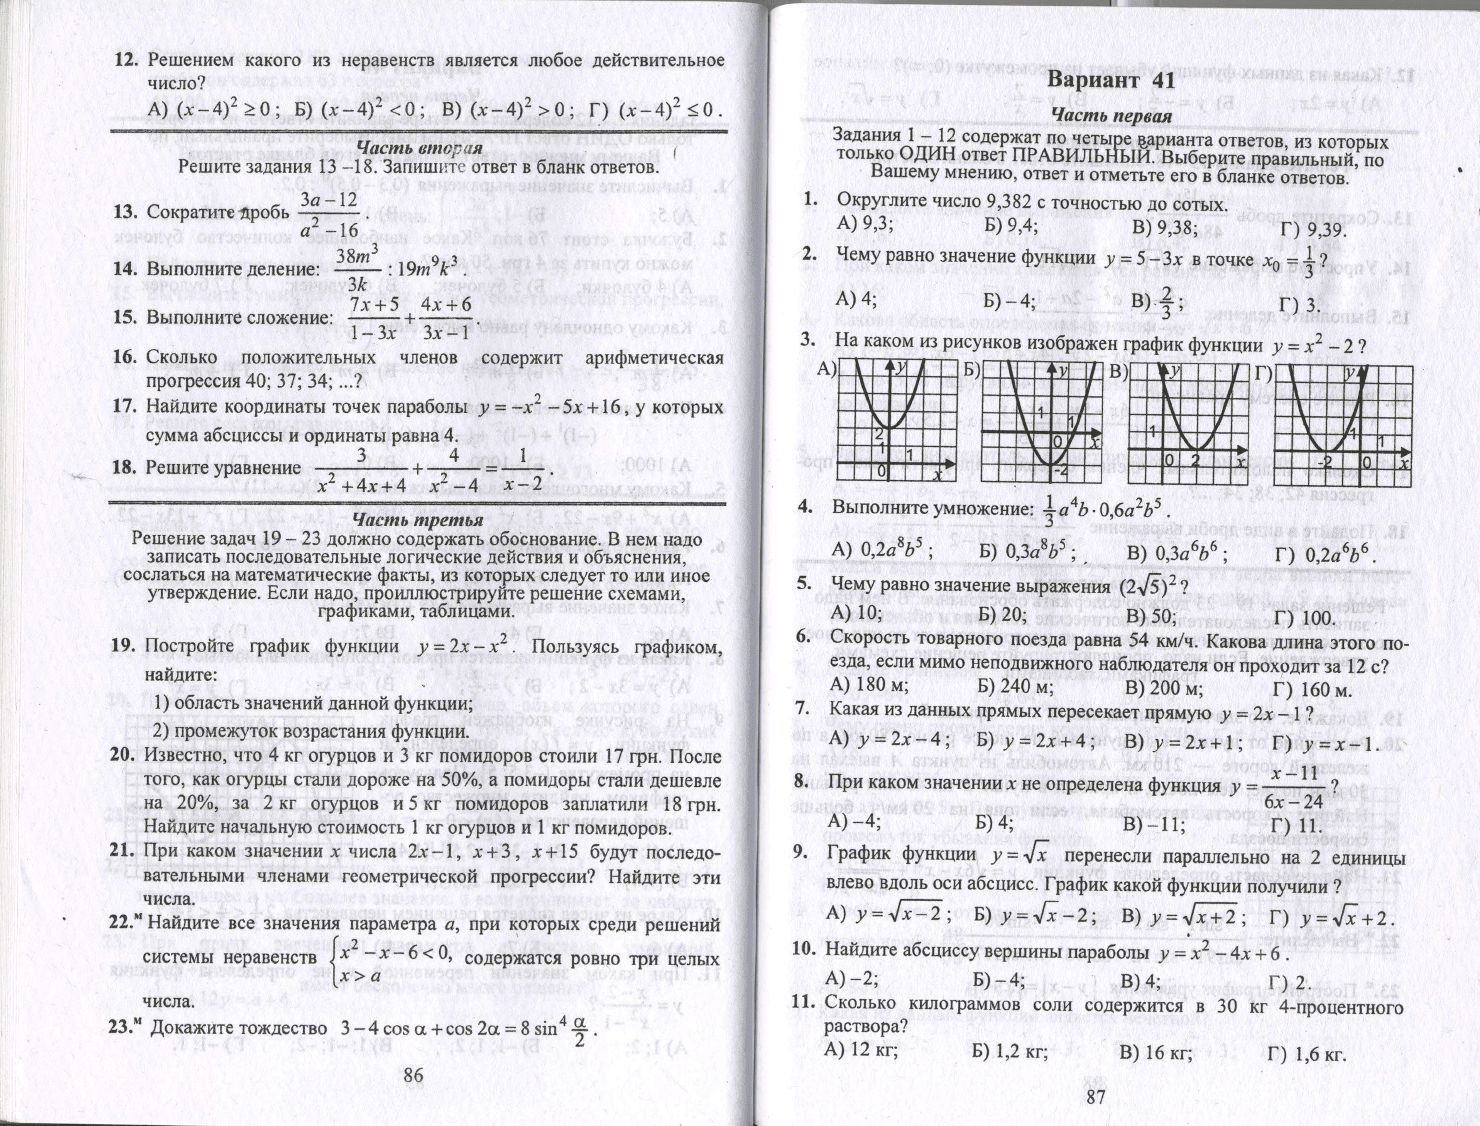 12. Решением какого из неравенств является любое действительное
число?
А) (x−4)² ≥ 0; Б) (x−4)² < 0; В) (x−4)² > 0; Г) (x−4)² ≤ 0.
Часть вторая
Решите задания 13 –18. Запишите ответ в бланк ответов.
13. Сократите дробь (3a−12)/(a²−16).
14. Выполните деление: 38m³/3k : 19m⁹k³.
15. Выполните сложение: (7x+5)/(1−3x) + (4x+6)/(3x−1).
16. Сколько положительных членов содержит арифметическая
прогрессия 40; 37; 34; ...?
17. Найдите координаты точек параболы y = −x² −5x+16, у которых
сумма абсциссы и ординаты равна 4.
18. Решите уравнение 3/(x²+4x+4) + 4/(x²−4) = 1/(x−2).
Часть третья
Решение задач 19 – 23 должно содержать обоснование. В нем надо
записать последовательные логические действия и объяснения,
сослаться на математические факты, из которых следует то или иное
утверждение. Если надо, проиллюстрируйте решение схемами,
графиками, таблицами.
19. Постройте график функции y = 2x − x². Пользуясь графиком,
найдите:
1) область значений данной функции;
2) промежуток возрастания функции.
20. Известно, что 4 кг огурцов и 3 кг помидоров стоили 17 грн. После
того, как огурцы стали дороже на 50%, а помидоры стали дешевле
на 20%, за 2 кг огурцов и 5 кг помидоров заплатили 18 грн.
Найдите начальную стоимость 1 кг огурцов и 1 кг помидоров.
21. При каком значении x числа 2x−1, x+3, x+15 будут последо-
вательными членами геометрической прогрессии? Найдите эти
числа.
22.ᴹ Найдите все значения параметра a, при которых среди решений
системы неравенств { x² −x−6 < 0, x > a содержатся ровно три целых
числа.
23.ᴹ Докажите тождество 3 − 4 cos α + cos 2α = 8 sin⁴ α/2.
86
Вариант 41
Часть первая
Задания 1 – 12 содержат по четыре варианта ответов, из которых
только ОДИН ответ ПРАВИЛЬНЫЙ. Выберите правильный, по
Вашему мнению, ответ и отметьте его в бланке ответов.
1. Округлите число 9,382 с точностью до сотых.
А) 9,3; Б) 9,4; В) 9,38; Г) 9,39.
2. Чему равно значение функции y = 5 − 3x в точке x₀ = 1/3?
А) 4; Б) – 4; В) 2/3; Г) 3.
3. На каком из рисунков изображен график функции y = x² − 2?
А) Б) В) Г)
y 2 1 1 0 x
y 1 1 0 x -2
1 0 2 x
y 1 1 -2 0 x
4. Выполните умножение: 1/3 a⁴b · 0,6a²b⁵.
А) 0,2a⁸b⁵; Б) 0,3a⁸b⁵; В) 0,3a⁶b⁶; Г) 0,2a⁶b⁶.
5. Чему равно значение выражения (2√5)²?
А) 10; Б) 20; В) 50; Г) 100.
6. Скорость товарного поезда равна 54 км/ч. Какова длина этого по-
езда, если мимо неподвижного наблюдателя он проходит за 12 с?
А) 180 м; Б) 240 м; В) 200 м; Г) 160 м.
7. Какая из данных прямых пересекает прямую y = 2x − 1?
А) y = 2x − 4; Б) y = 2x + 4; В) y = 2x + 1; Г) y = x − 1.
8. При каком значении x не определена функция y = (x−11)/(6x−24)?
А) –4; Б) 4; В) –11; Г) 11.
9. График функции y = √x перенесли параллельно на 2 единицы
влево вдоль оси абсцисс. График какой функции получили?
А) y = √(x−2); Б) y = √x − 2; В) y = √(x+2); Г) y = √x + 2.
10. Найдите абсциссу вершины параболы y = x² − 4x + 6.
А) –2; Б) – 4; В) 4; Г) 2.
11. Сколько килограммов соли содержится в 30 кг 4-процентного
раствора?
А) 12 кг; Б) 1,2 кг; В) 16 кг; Г) 1,6 кг.
87